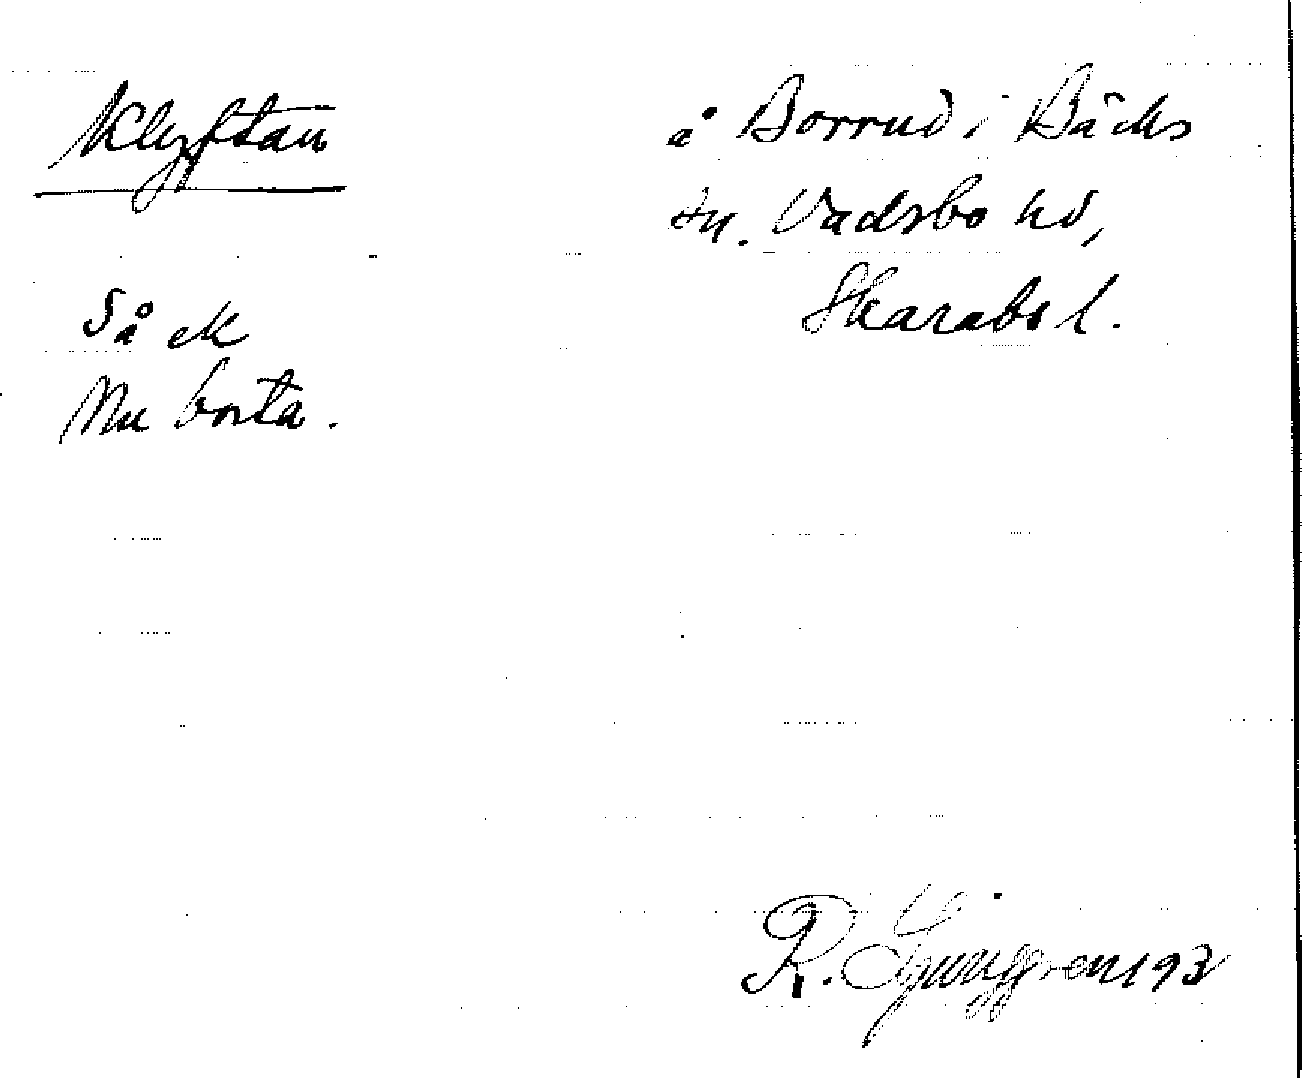 Klyftan
å Borrud i Bäcks
sn. Vadsbo hd,
Skarabs l.
Så ek
Nu borta.
R. Ljunggren 193